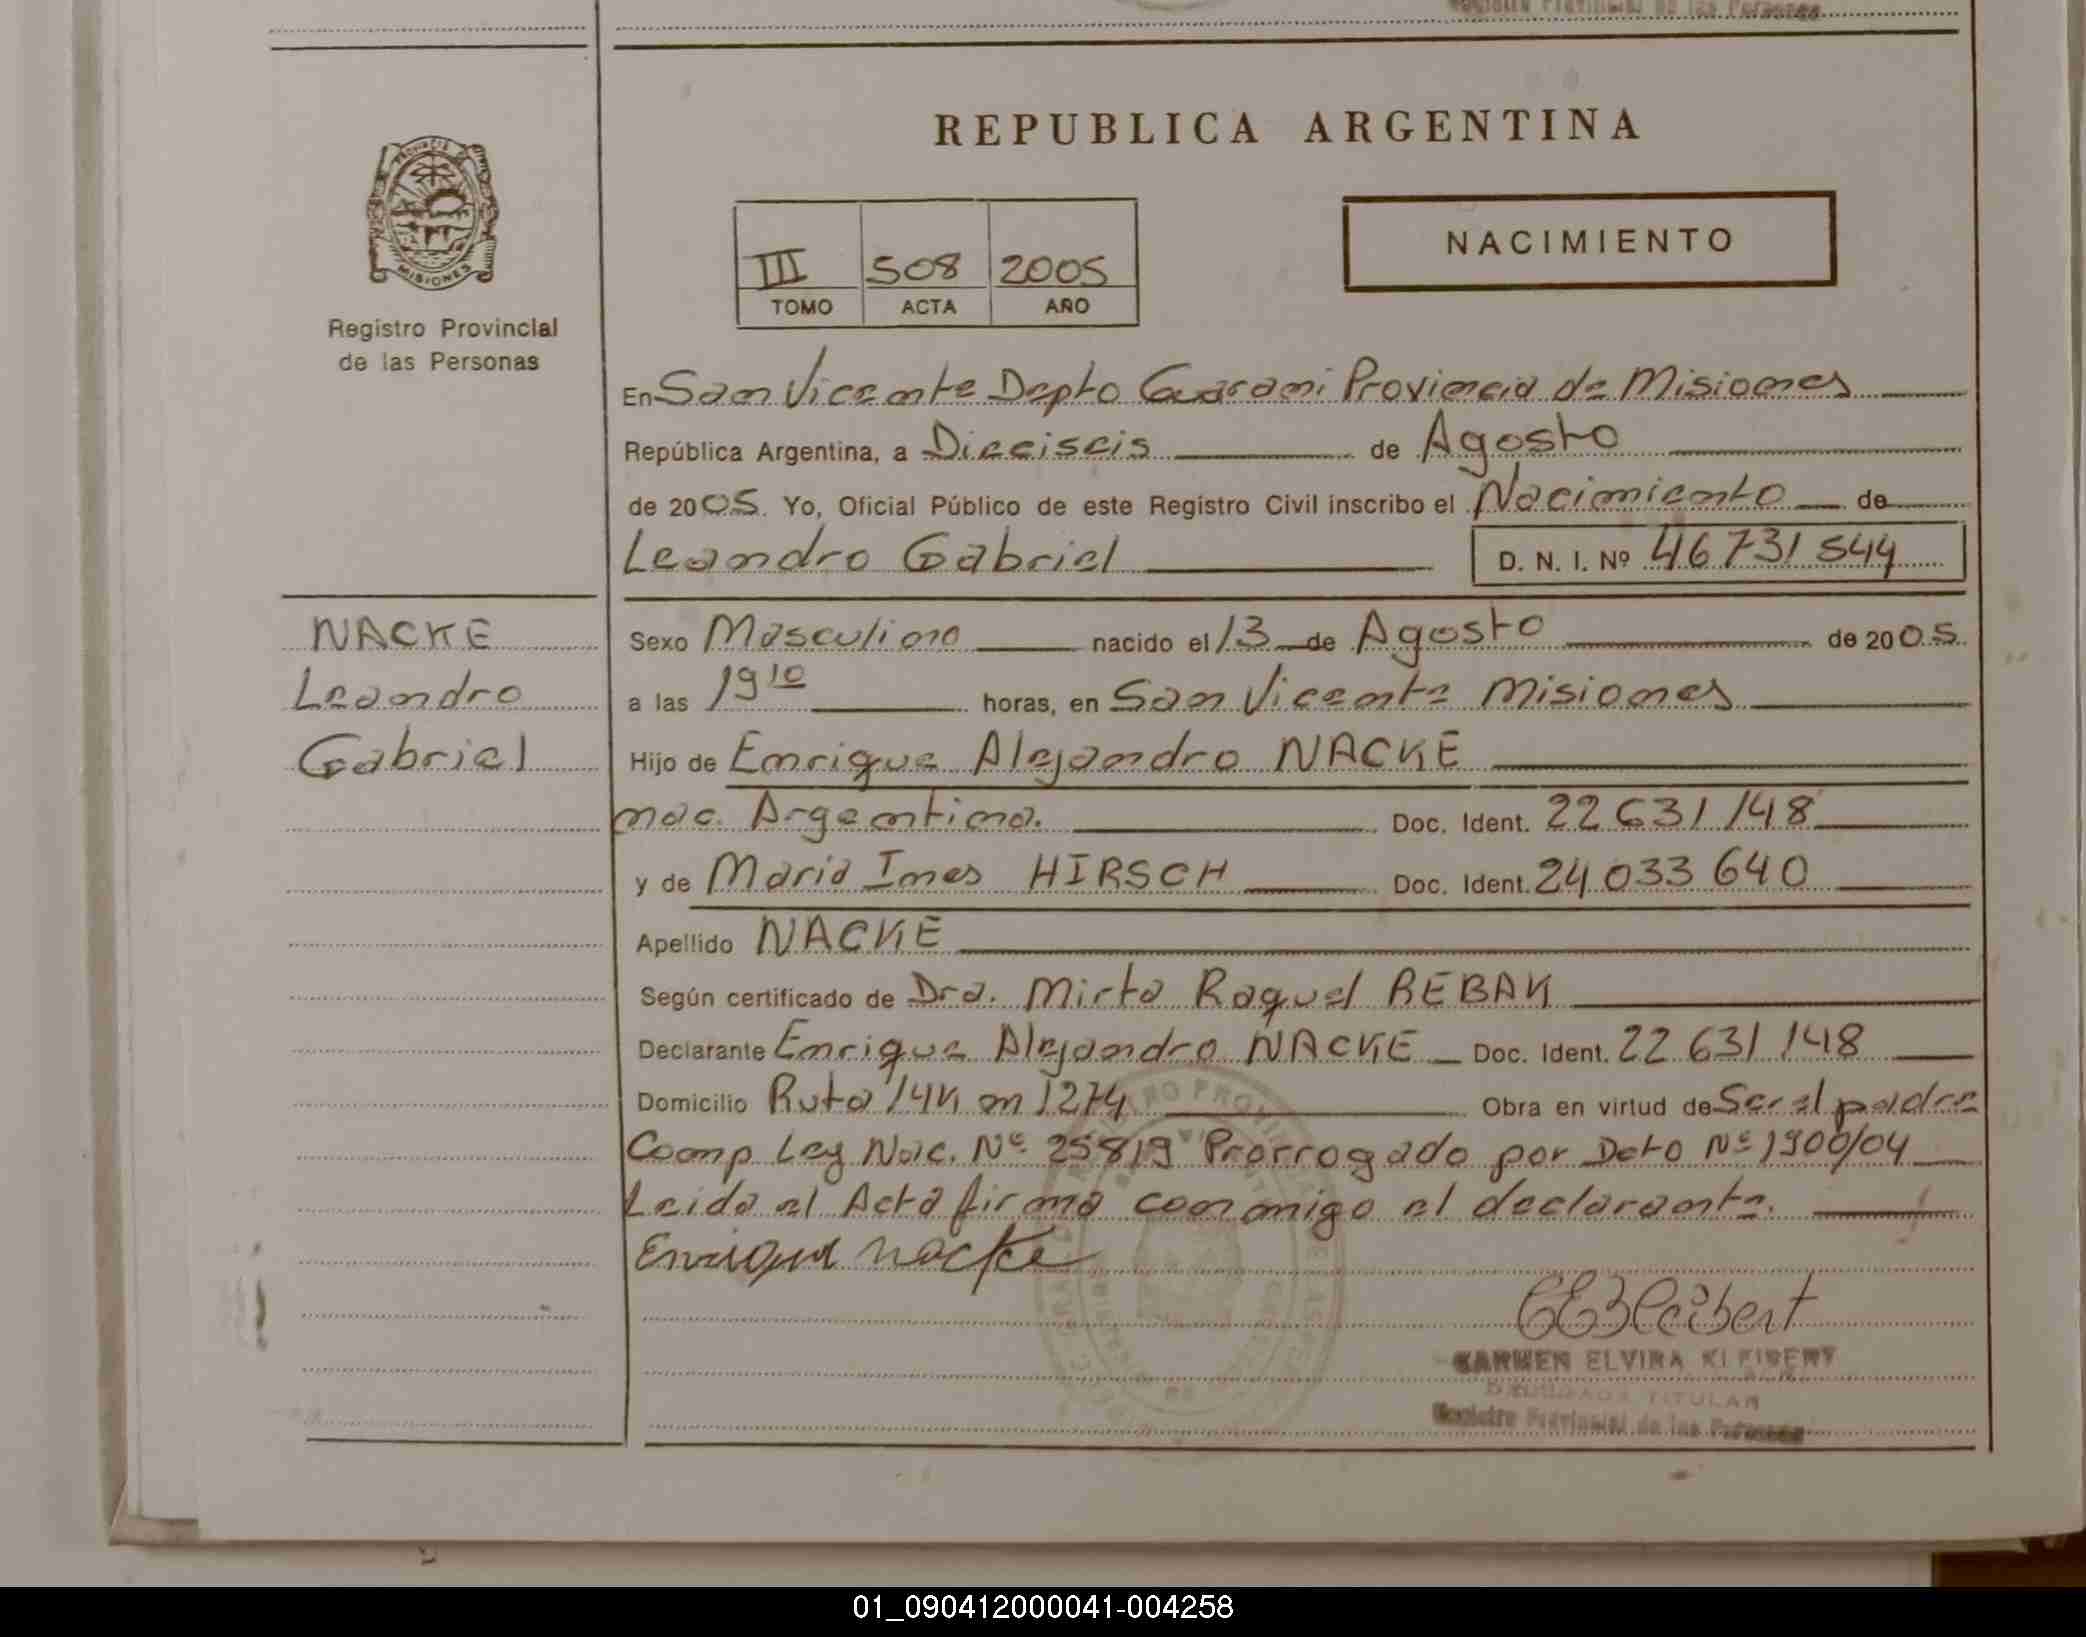 Registro Provincial de las Personas
REPUBLICA ARGENTINA
PROVINCIA DE
MISIONES
Registro Provincial
de las Personas
III 508 2005
TOMO ACTA AÑO
NACIMIENTO
En San Vicente Depto Guarani Provincia de Misiones
República Argentina, a Dieciseis de Agosto
de 2005. Yo, Oficial Público de este Registro Civil inscribo el Nacimiento de
Leandro Gabriel D. N. I. Nº 46731544
NACKE
Leandro
Gabriel
Sexo Masculino nacido el 13 de Agosto de 2005
a las 19 10 horas, en San Vicente Misiones
Hijo de Enrique Alejandro NACKE
nac. Argentina. Doc. Ident. 22 631 148
y de Maria Ines HIRSCH Doc. Ident. 24 033 640
Apellido NACKE
Según certificado de Dra. Mirta Raquel REBAK
Declarante Enrique Alejandro NACKE Doc. Ident. 22 631 148
Domicilio Ruta 14 Km 1274 Obra en virtud de Ser el padre
Comp Ley Nac. Nº 25819 Prorrogado por Dcto Nº 1900/04
Leida el Acta firma conmigo el declarante.
Enrique Nacke
CARMEN ELVIRA KLEIBERT
DELEGADA TITULAR
Registro Provincial de las Personas
01_090412000041-004258